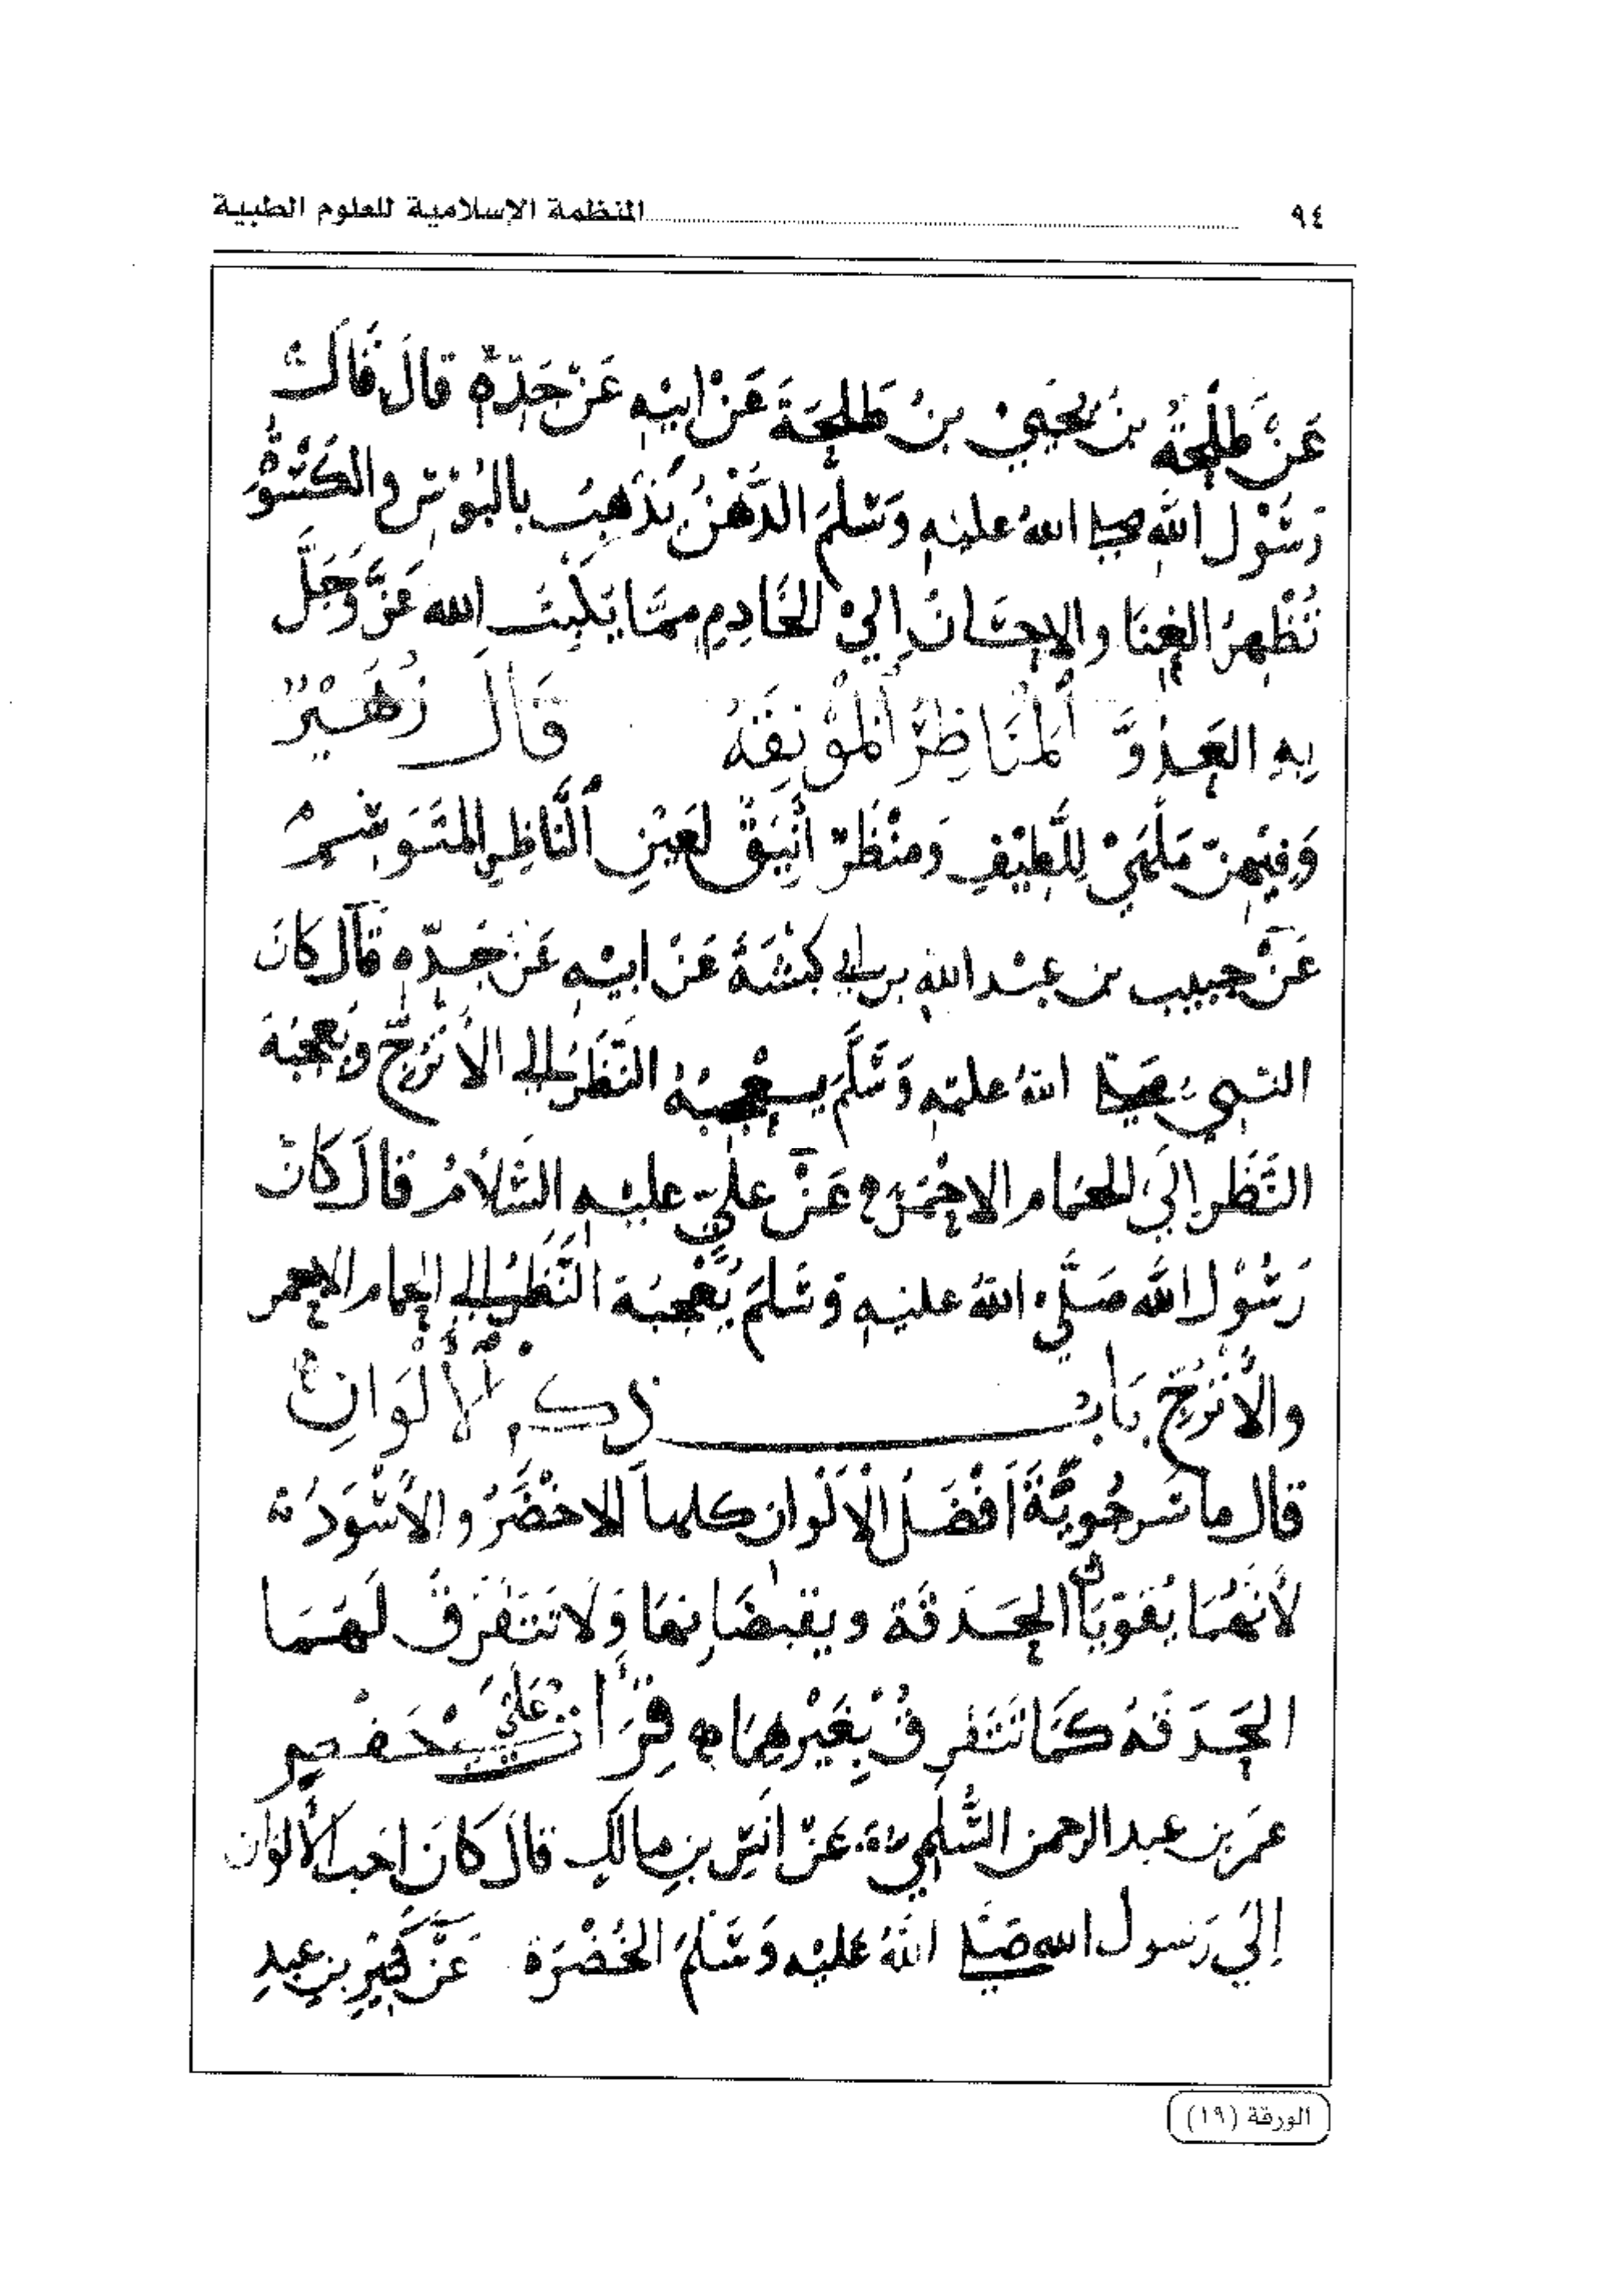 ٩٤ المنظمة الإسلامية للعلوم الطبية
عَنْ طَلْحَةُ بنُ يحَيىْ بنُ طَلحَةَ عَنْ ابيْهِ عَنْ جَدّهِ قالَ قَالَ
رَسُوْل اللهِ صلى اللهُ عليْهِ وَسَلمَ الدَّهْنُ يَذْهِبُ بالبُؤسِ والكَسْوَةُ
تُظْهِرُ الغِنَا والاِحسَانُ إليْ الخَادِمِ مِمّا يَكْبِتُ الله عَزَّ وَجَلَّ
بِهِ العَدُوَّ اَلمنَاظِرُ اَلمُوْنِقَهُ قَالَ زُهَيْرٌ
وَفِيْهِنّ مَلْهَىْ لِلَّطِيْفِ وَمنْظَرٌ أَنِيَقٌ لعَيْنِ اَلنَّاظِرِ المتَوَسِّمِ
عَنْ حبيب بن عبْد الله بن ابي كبْشَةَ عَنْ ابيْهِ عَنْ جَدّهِ قَالَ كَانَ
النبي صَلى اللهُ عليْهِ وَسَلَّمَ يعْجِبُهُ النَّظَرُ إلى الأتْرُجّ وَيَعْجِبُهُ
النَّظَرُ إلَى الحمَام الاحْمَرُ عَنْ عَليٍّ عليْهِ السَّلَامُ قالَ كَانَ
رَسُوْل اللهِ صَلَّى اللهُ عليْهِ وَسَلمَ يُعْجِبُهُ النَّظَرُ إلى الحمام الاحمر
والأُتْرُجّ بَابُ ذِكرِ اَلأَلْوَانِ
قال ماسَرجُويَّةَ اَفْضَلُ الْاَلْوان كلها الاخْضَرُ والأسْوَدُ
لأنَهُمَا يُقَوّيَانِ الحَدَقَة ويقبضَانِهَا وَلَا تَتَفَرَقُ لَهُمَا
الحَدَقَهُ كَمَا تَتَفَرقُ بِغَيْرِهِمَا قَرَأتُ عَلَىْ حَفْص
عمَر بن عبد الرحمن السُّلَمِي عَنْ انَسِ بنِ مالكٍ قالَ كَانَ احَب الألوَان
إلَىَ رَسول الله صَلى اللهُ عَليْهِ وَسَلمَ الخُضْرَة عَنْ كَثِيْرِ بنِ عبدِ
الورقة (١٩)